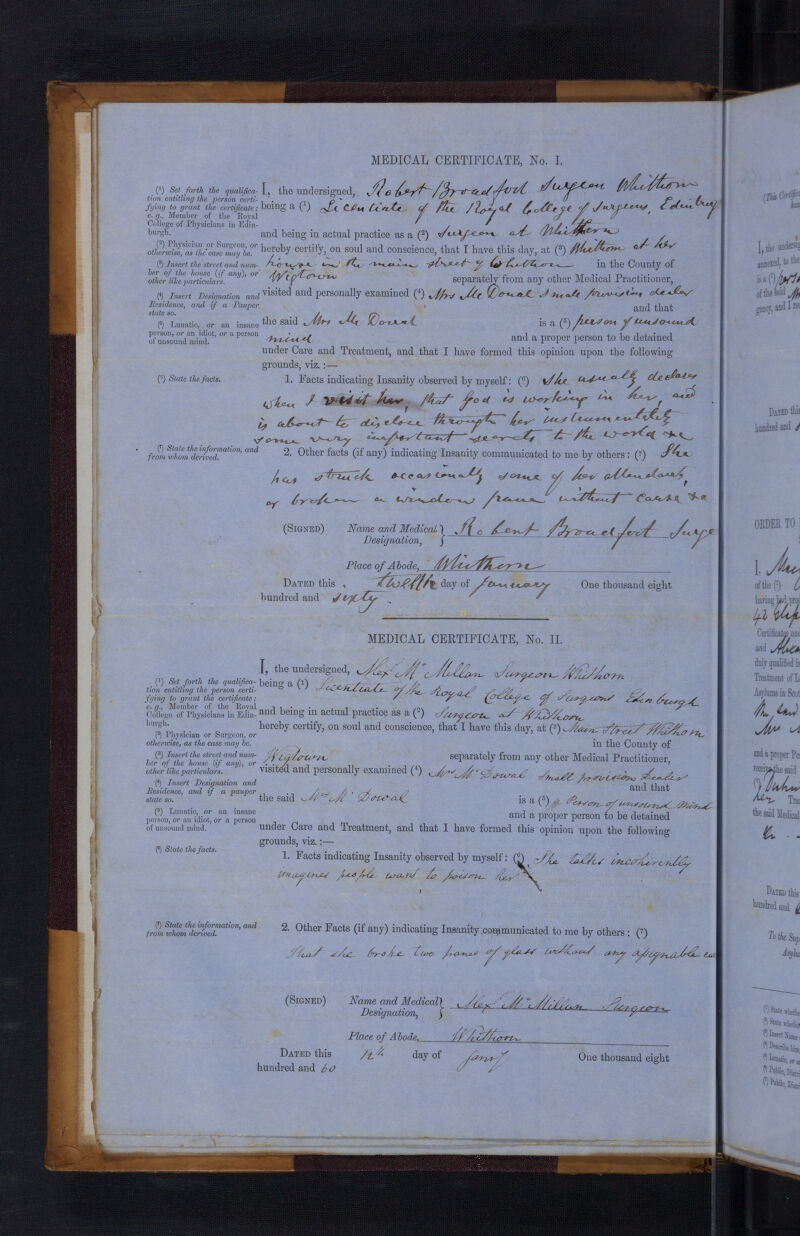 MEDICAL CERTIFICATE, No. I.
(¹) Set forth the qualifica-
tion entitling the person certi-
fying to grant the certificate;
e. g., Member of the Royal
College of Physicians in Edin-
burgh.
(²) Physician or Surgeon, or
otherwise, as the case may be.
(³) Insert the street and num-
ber of the house (if any), or
other like particulars.
(⁴) Insert Designation and
Residence, and if a Pauper
state so.
(⁵) Lunatic, or an insane
person, or an idiot, or a person
of unsound mind.
(⁶) State the facts.
(⁷) State the information, and
from whom derived.
I, the undersigned, Robert Broadfoot Surgeon Whithorn
being a (¹) Licentiate of the Royal College of Surgeons, Edinburg
and being in actual practice as a (²) Surgeon at Whithorn
hereby certify, on soul and conscience, that I have this day, at (³) Whithorn at her
house in the main street of Whithorn in the County of
Wigtown separately from any other Medical Practitioner,
visited and personally examined (⁴) Mrs Mc Doual Small provision dealer
and that
the said Mrs Mc Doual is a (⁵) person of unsound
mind and a proper person to be detained
under Care and Treatment, and that I have formed this opinion upon the following
grounds, viz.:—
1. Facts indicating Insanity observed by myself: (⁶) She usually declares
when I visit her, that God is working in her, and
is about to disclose through her instrumentality
some very important secrets to the world &c
2. Other facts (if any) indicating Insanity communicated to me by others: (⁷) She
has struck occasionally some of her attendants,
or broken a window pane without cause &c
(SIGNED) Name and Medical Designation, Robert Broadfoot Surge
Place of Abode, Whithorn
DATED this twelfth day of January One thousand eight
hundred and sixty.
MEDICAL CERTIFICATE, No. II.
(¹) Set forth the qualifica-
tion entitling the person certi-
fying to grant the certificate;
e. g., Member of the Royal
College of Physicians in Edin-
burgh.
(²) Physician or Surgeon, or
otherwise, as the case may be.
(³) Insert the street and num-
ber of the house (if any), or
other like particulars.
(⁴) Insert Designation and
Residence, and if a pauper
state so.
(⁵) Lunatic, or an insane
person, or an idiot, or a person
of unsound mind.
(⁶) State the facts.
(⁷) State the information, and
from whom derived.
I, the undersigned, Alexr Mc Millan Surgeon Whithorn
being a (¹) Licentiate of the Royal College of Surgeons Edenburgh
and being in actual practice as a (²) Surgeon at Whithorn
hereby certify, on soul and conscience, that I have this day, at (³) Main Street Whithorn
in the County of
Wigtown separately from any other Medical Practitioner,
visited and personally examined (⁴) Mrs Mc Dowal Small provision Dealer
and that
the said Mrs Mc Dowal is a (⁵) a Person of unsound mind
and a proper person to be detained
under Care and Treatment, and that I have formed this opinion upon the following
grounds, viz.:—
1. Facts indicating Insanity observed by myself: (⁶) She talks incoherently
imagines people want to poison her
2. Other Facts (if any) indicating Insanity communicated to me by others: (⁷)
That she broke two panes of glass without any assignable
(SIGNED) Name and Medical Designation, Alexr Mc Millan Surgeon
Place of Abode, Whithorn
DATED this 12th day of Jany One thousand eight
hundred and 60
ORDER TO